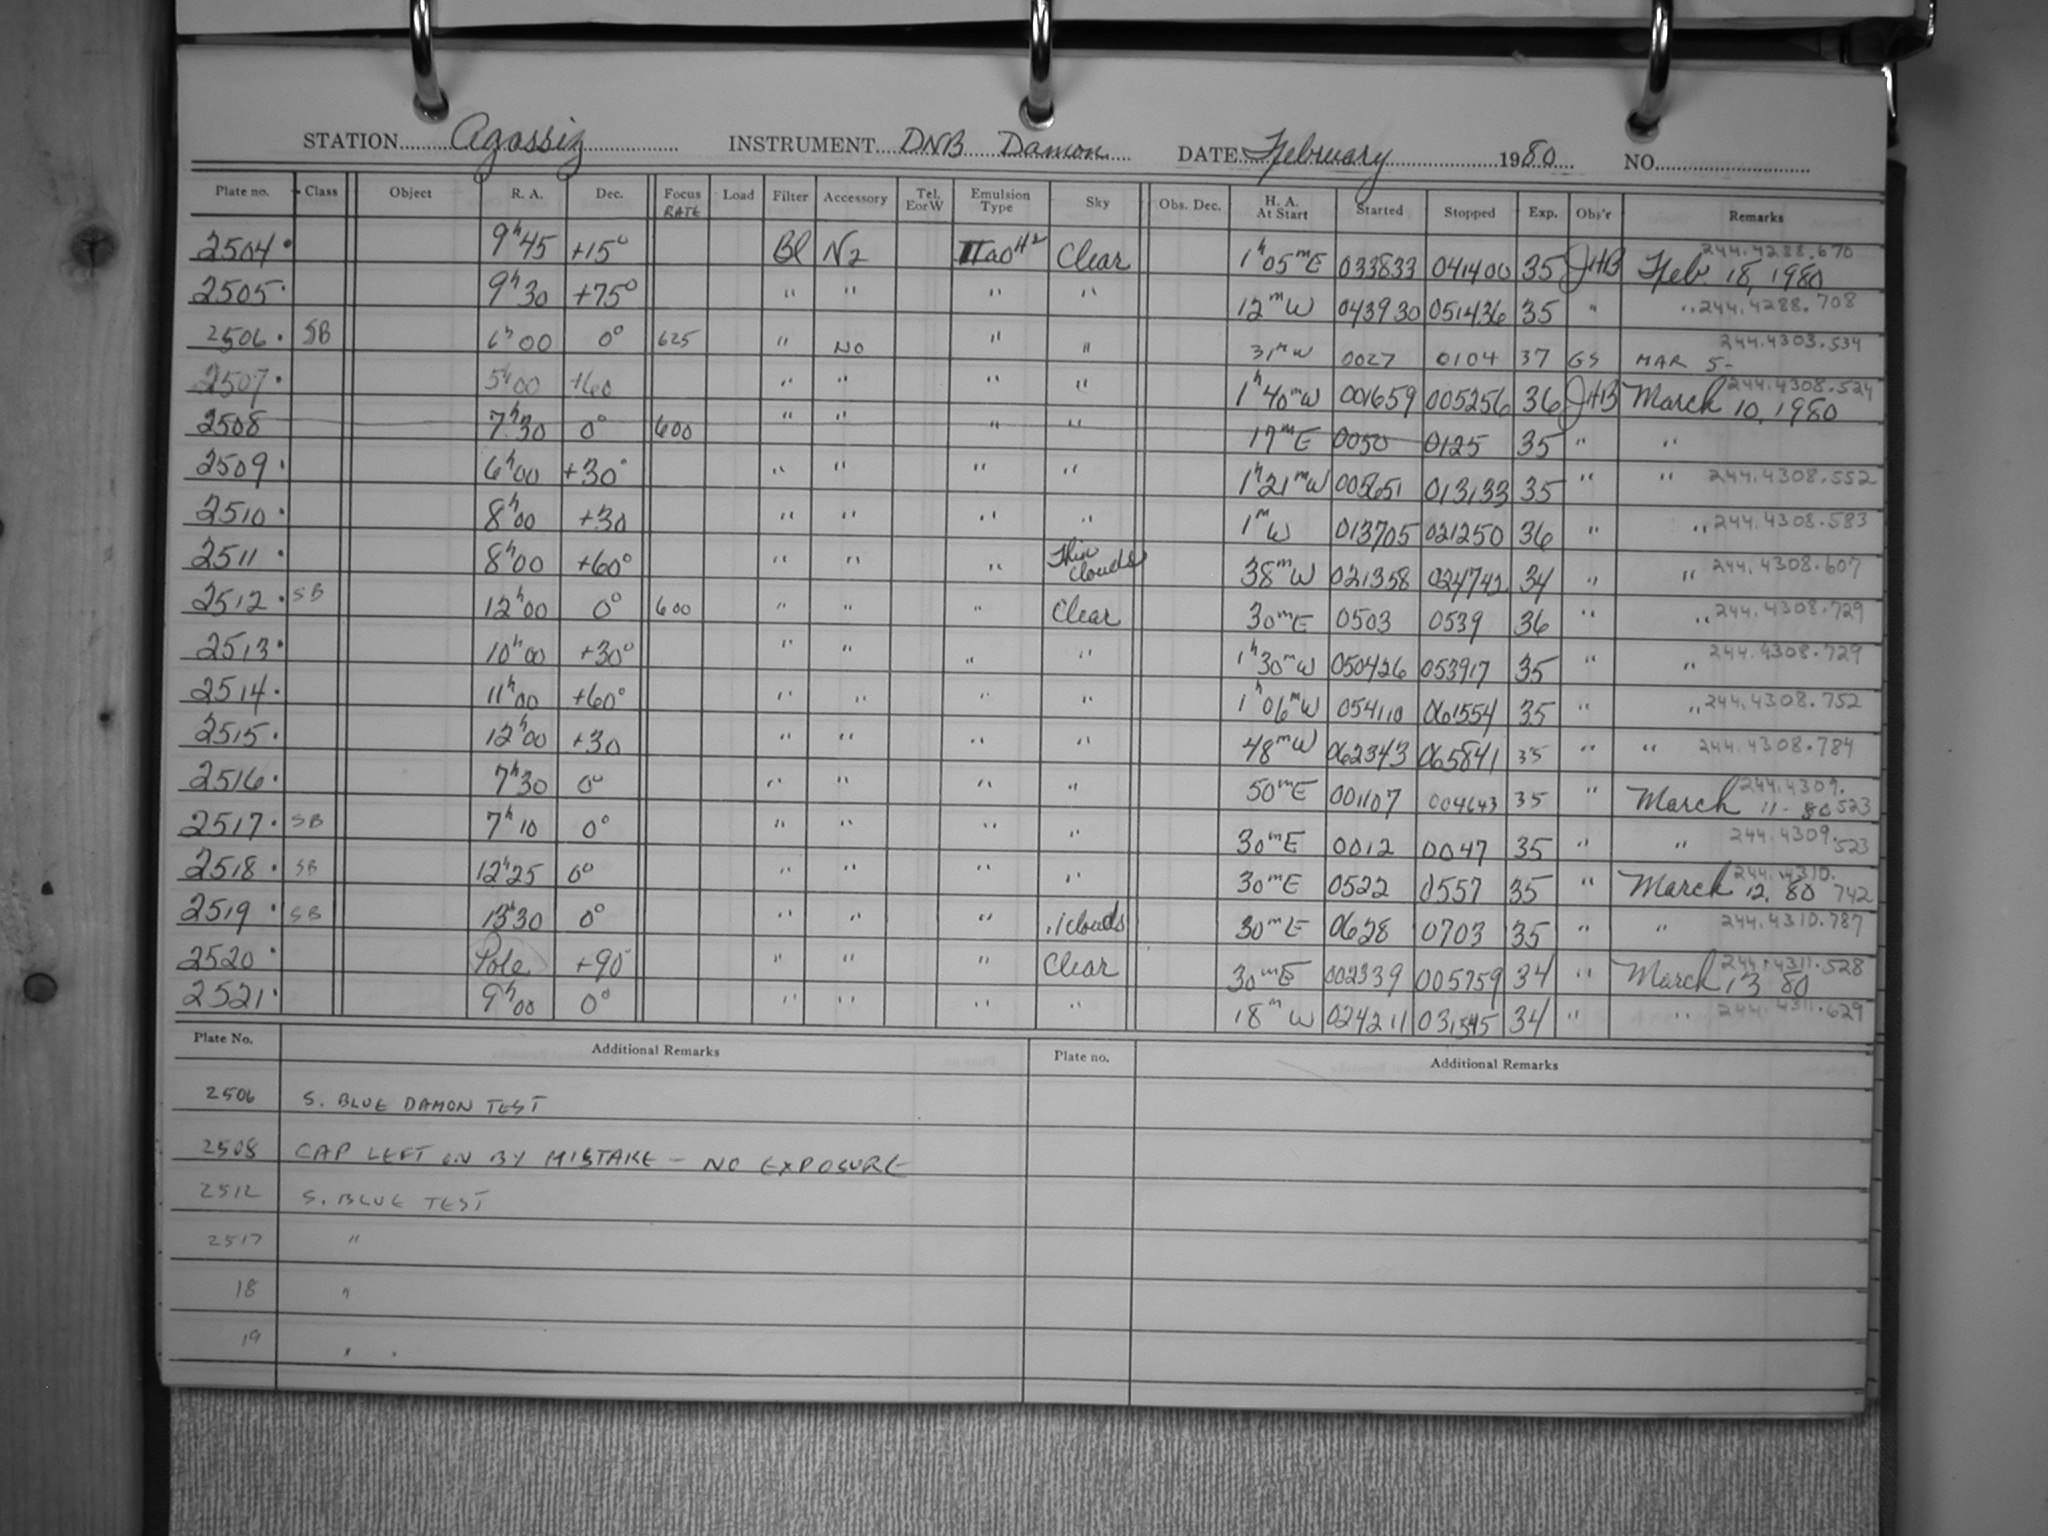 STATION Agassiz INSTRUMENT DNB Damon DATE February 1980 NO.
Plate no. Class Object R. A. Dec. Focus RATE Load Filter Accessory Tel. E or W Emulsion Type Sky Obs. Dec. H. A. At Start Started Stopped Exp. Obs'r Remarks
2504 9h45 +15° Bl N2 IIaO H2 Clear 1h05mE 033833 041400 35 JHB Feb. 18, 1980 244.4288.670
2505 9h30 +75° " " " " 12mW 043930 051436 35 " " 244.4288.708
2506 SB 6h00 0° 625 " NO " " 31mW 0027 0104 37 GS MAR 5- 244.4303.534
2507 5h00 +60 " " " " 1h40mW 001659 005256 36 JHB March 10, 1980 244.4308.524
2508 7h30 0° 600 " " " " 17mE 0050 0125 35 " "
2509 6h00 +30° " " " " 1h21mW 005651 013133 35 " " 244.4308.552
2510 8h00 +30 " " " " 1mW 013705 021250 36 " " 244.4308.583
2511 8h00 +60° " " " Thin clouds 38mW 021358 024742 34 " " 244.4308.607
2512 SB 12h00 0° 600 " " " Clear 30mE 0503 0539 36 " " 244.4308.729
2513 10h00 +30° " " " " 1h30mW 050426 053917 35 " " 244.4308.729
2514 11h00 +60° " " " " 1h06mW 054110 061554 35 " " 244.4308.752
2515 12h00 +30 " " " " 48mW 062343 065841 35 " " 244.4308.784
2516 7h30 0° " " " " 50mE 001107 004643 35 " March 11-80 244.4309.523
2517 SB 7h10 0° " " " " 30mE 0012 0047 35 " " 244.4309.523
2518 SB 12h25 0° " " " " 30mE 0522 0557 35 " March 12, 80 244.4310.742
2519 SB 13h30 0° " " " .1clouds 30mE 0628 0703 35 " " 244.4310.787
2520 Pole +90° " " " Clear 30mE 002339 005759 34 " March 13 80 244.4311.528
2521 9h00 0° " " " " 18mW 024211 031545 34 " " 244.4311.629
Plate No. Additional Remarks Plate no. Additional Remarks
2506 S. BLUE DAMON TEST
2508 CAP LEFT ON BY MISTAKE – NO EXPOSURE
2512 S. BLUE TEST
2517 "
18 "
19 " "